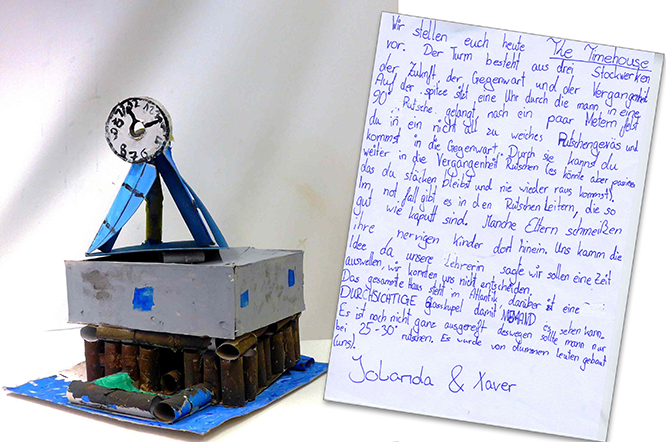 Wir stellen euch heute The Timehouse
vor. Der Turm besteht aus drei Stockwerken
der Zukunft, der Gegenwart und der Vergangenheit
Auf der spitze sitzt eine Uhr durch die mann in eine
90° Rutsche gelangt, nach ein paar Metern fälst
du in ein nicht all zu weiches Rutschengefäs und
kommst in die Gegenwart. Durch sie kannst du
weiter in die Vergangenheit Rutschen (es könnte aber passieren
das du stecken bleibst und nie wieder raus kommst).
Im not fall gibt es in den Rutschen Leitern, die so
gut wie kaputt sind. Manche Eltern schmeißen
Ihre nervigen kinder dort hinein. Uns kamm die
Idee da unsere Lehrerin sagte wir sollen eine Zeit
auswellen, wir konnten uns nicht entscheiden.
Das gesammte Haus steht im Atlantik darüber ist eine
DURCHSICHTIGE Glasskupel damit NIEMAND es sehen kann.
Es ist noch nicht ganz ausgereift deswegen sollte mann nur
bei 25-30° rutschen. Es wurde von dummen leuten gebaut
(uns).
Jolanda & Xaver
12